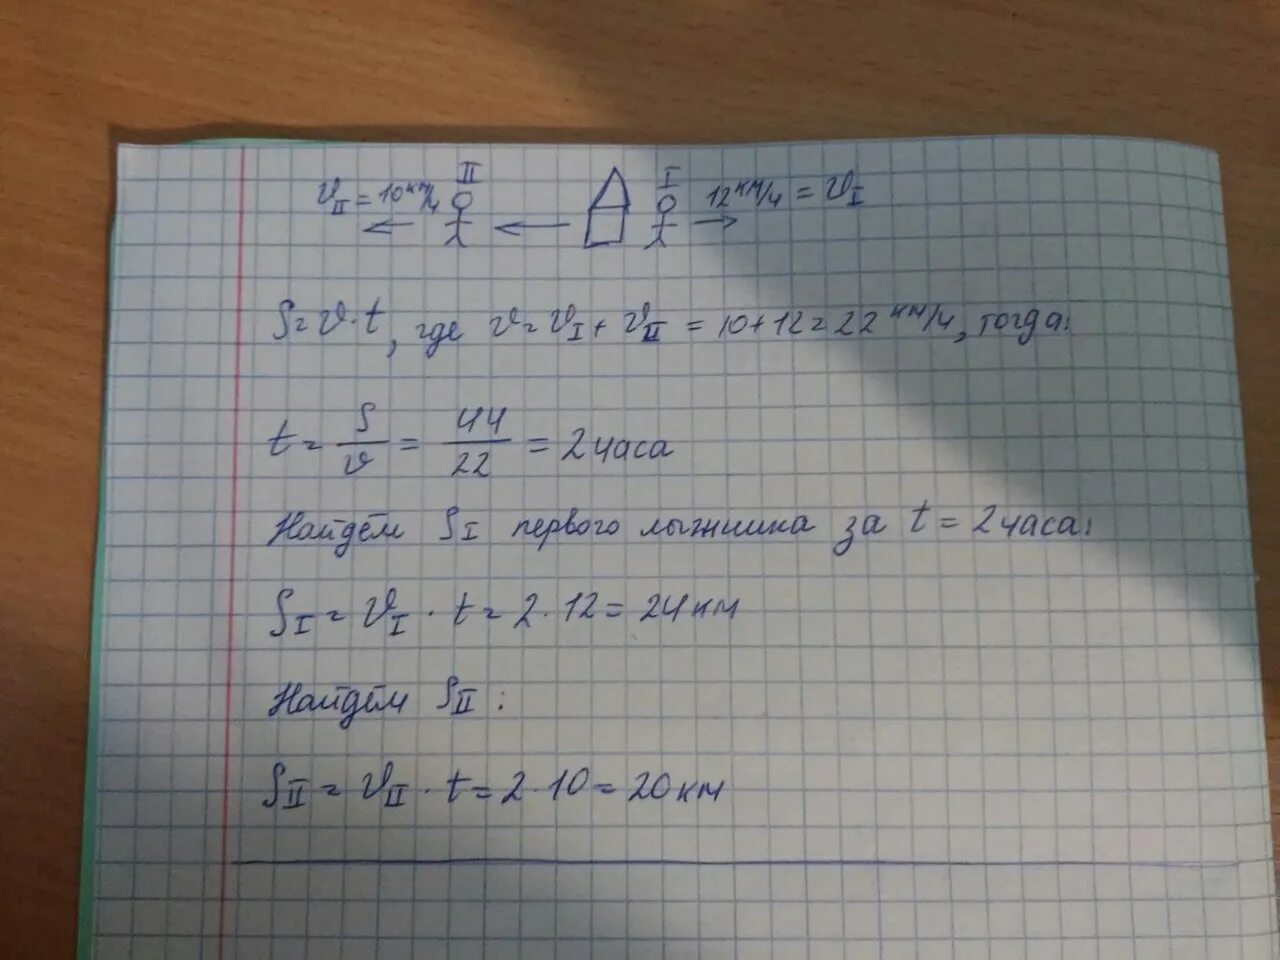 II I
v_II = 10 км/ч 12 км/ч = v_I
S = v · t, где v = v_I + v_II = 10 + 12 = 22 км/ч, тогда:
t = S/v = 44/22 = 2 часа
Найдём S_I первого лыжника за t = 2 часа:
S_I = v_I · t = 2 · 12 = 24 км
Найдём S_II :
S_II = v_II · t = 2 · 10 = 20 км